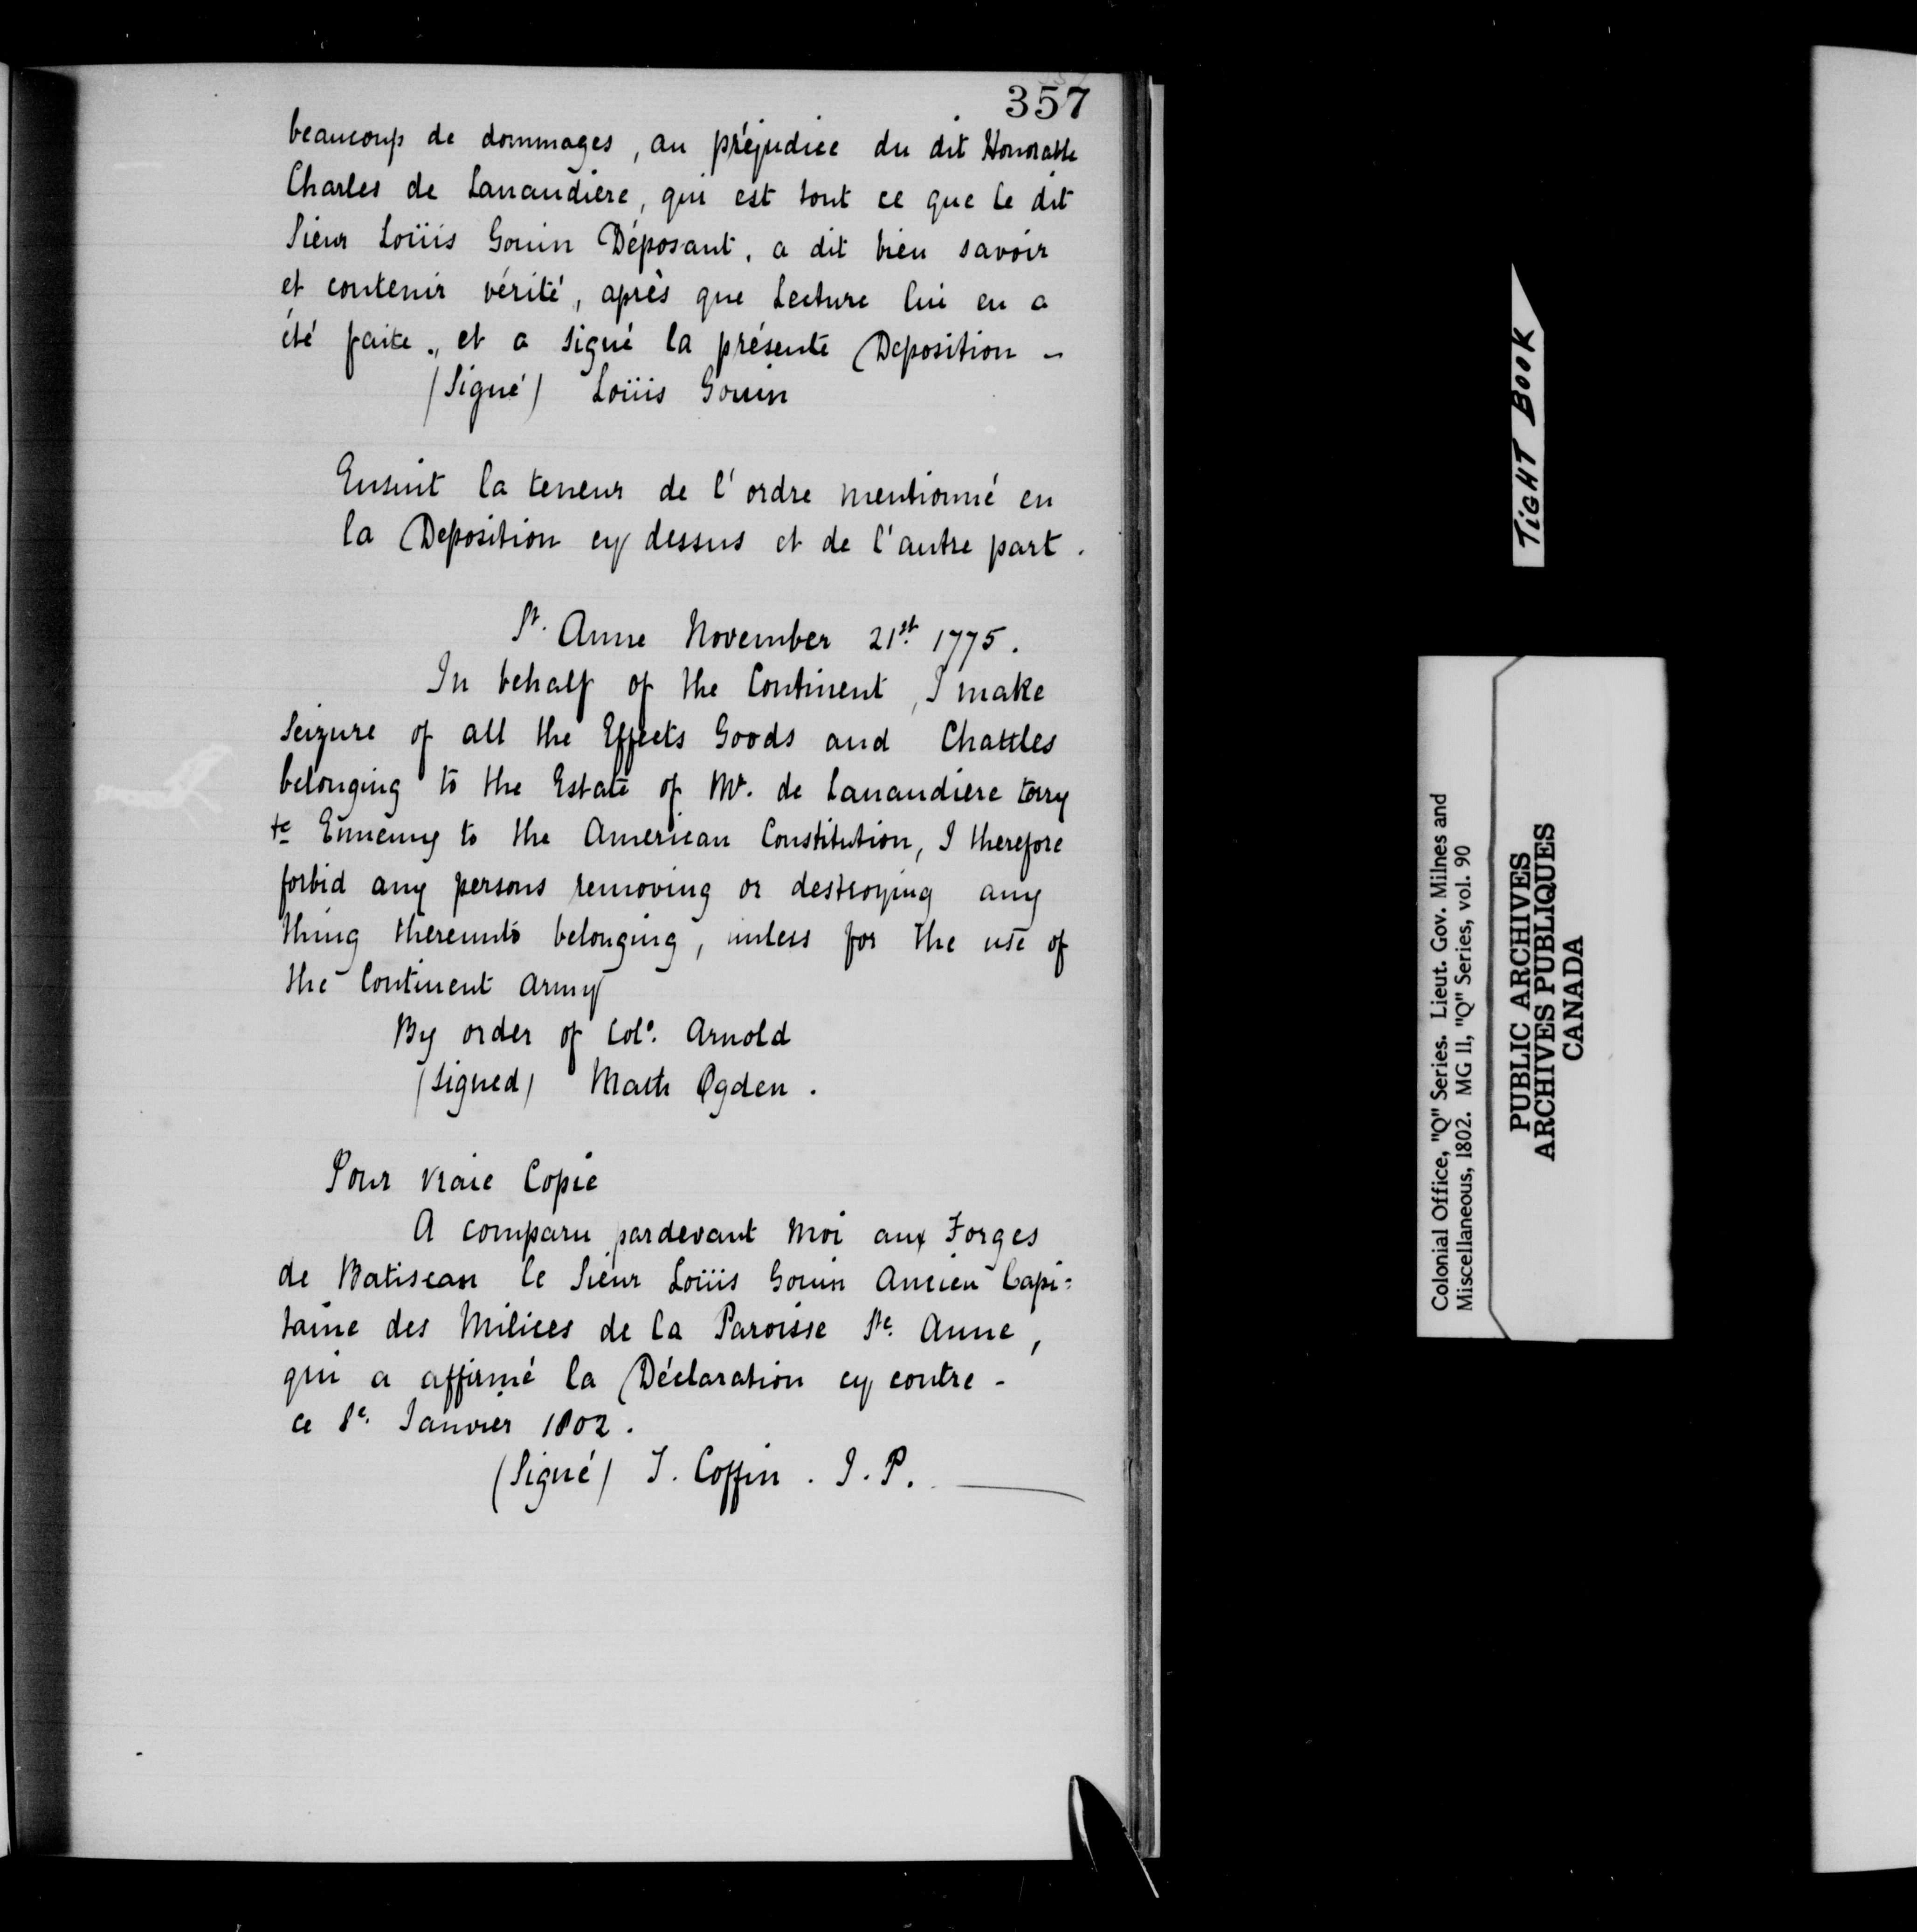 357
beaucoup de dommages, au préjudice du dit Honorable
Charles de Lanaudiere, qui est tout ce que le dit
Sieur Loüis Gouin Déposant, a dit bien savoir
et contenir vérité, après que Lecture lui en a
été faite., et a signé la présente Deposition -
(Signé) Loüis Gouin
Ensuit la teneur de l'ordre mentionné en
la Deposition cy dessus et de l'autre part.
St. Anne November 21st. 1775.
In behalf of the Continent, I make
Seizure of all the Effects Goods and Chattles
belonging to the Estate of Mr. de Lanaudiere torry
te Ennemy to the American Constitution, I therefore
forbid any persons removing or destroying any
thing thereunto belonging, unless for the use of
the Continent Army
By order of Colo. Arnold
(signed) Math Ogden.
Pour vraie Copie
A comparu pardevant moi aux Forges
de Batiscan le Sieur Loüis Gouin Ancien Capi=
taine des Milices de la Paroisse Ste. Anne,
qui a affirmé la Déclaration cy contre -
ce 8e. Janvier 1802.
(Signé) T. Coffin. J. P.
TIGHT BOOK
Colonial Office, "Q" Series. Lieut. Gov. Milnes and
Miscellaneous, 1802. MG 11, "Q" Series, vol. 90
PUBLIC ARCHIVES
ARCHIVES PUBLIQUES
CANADA